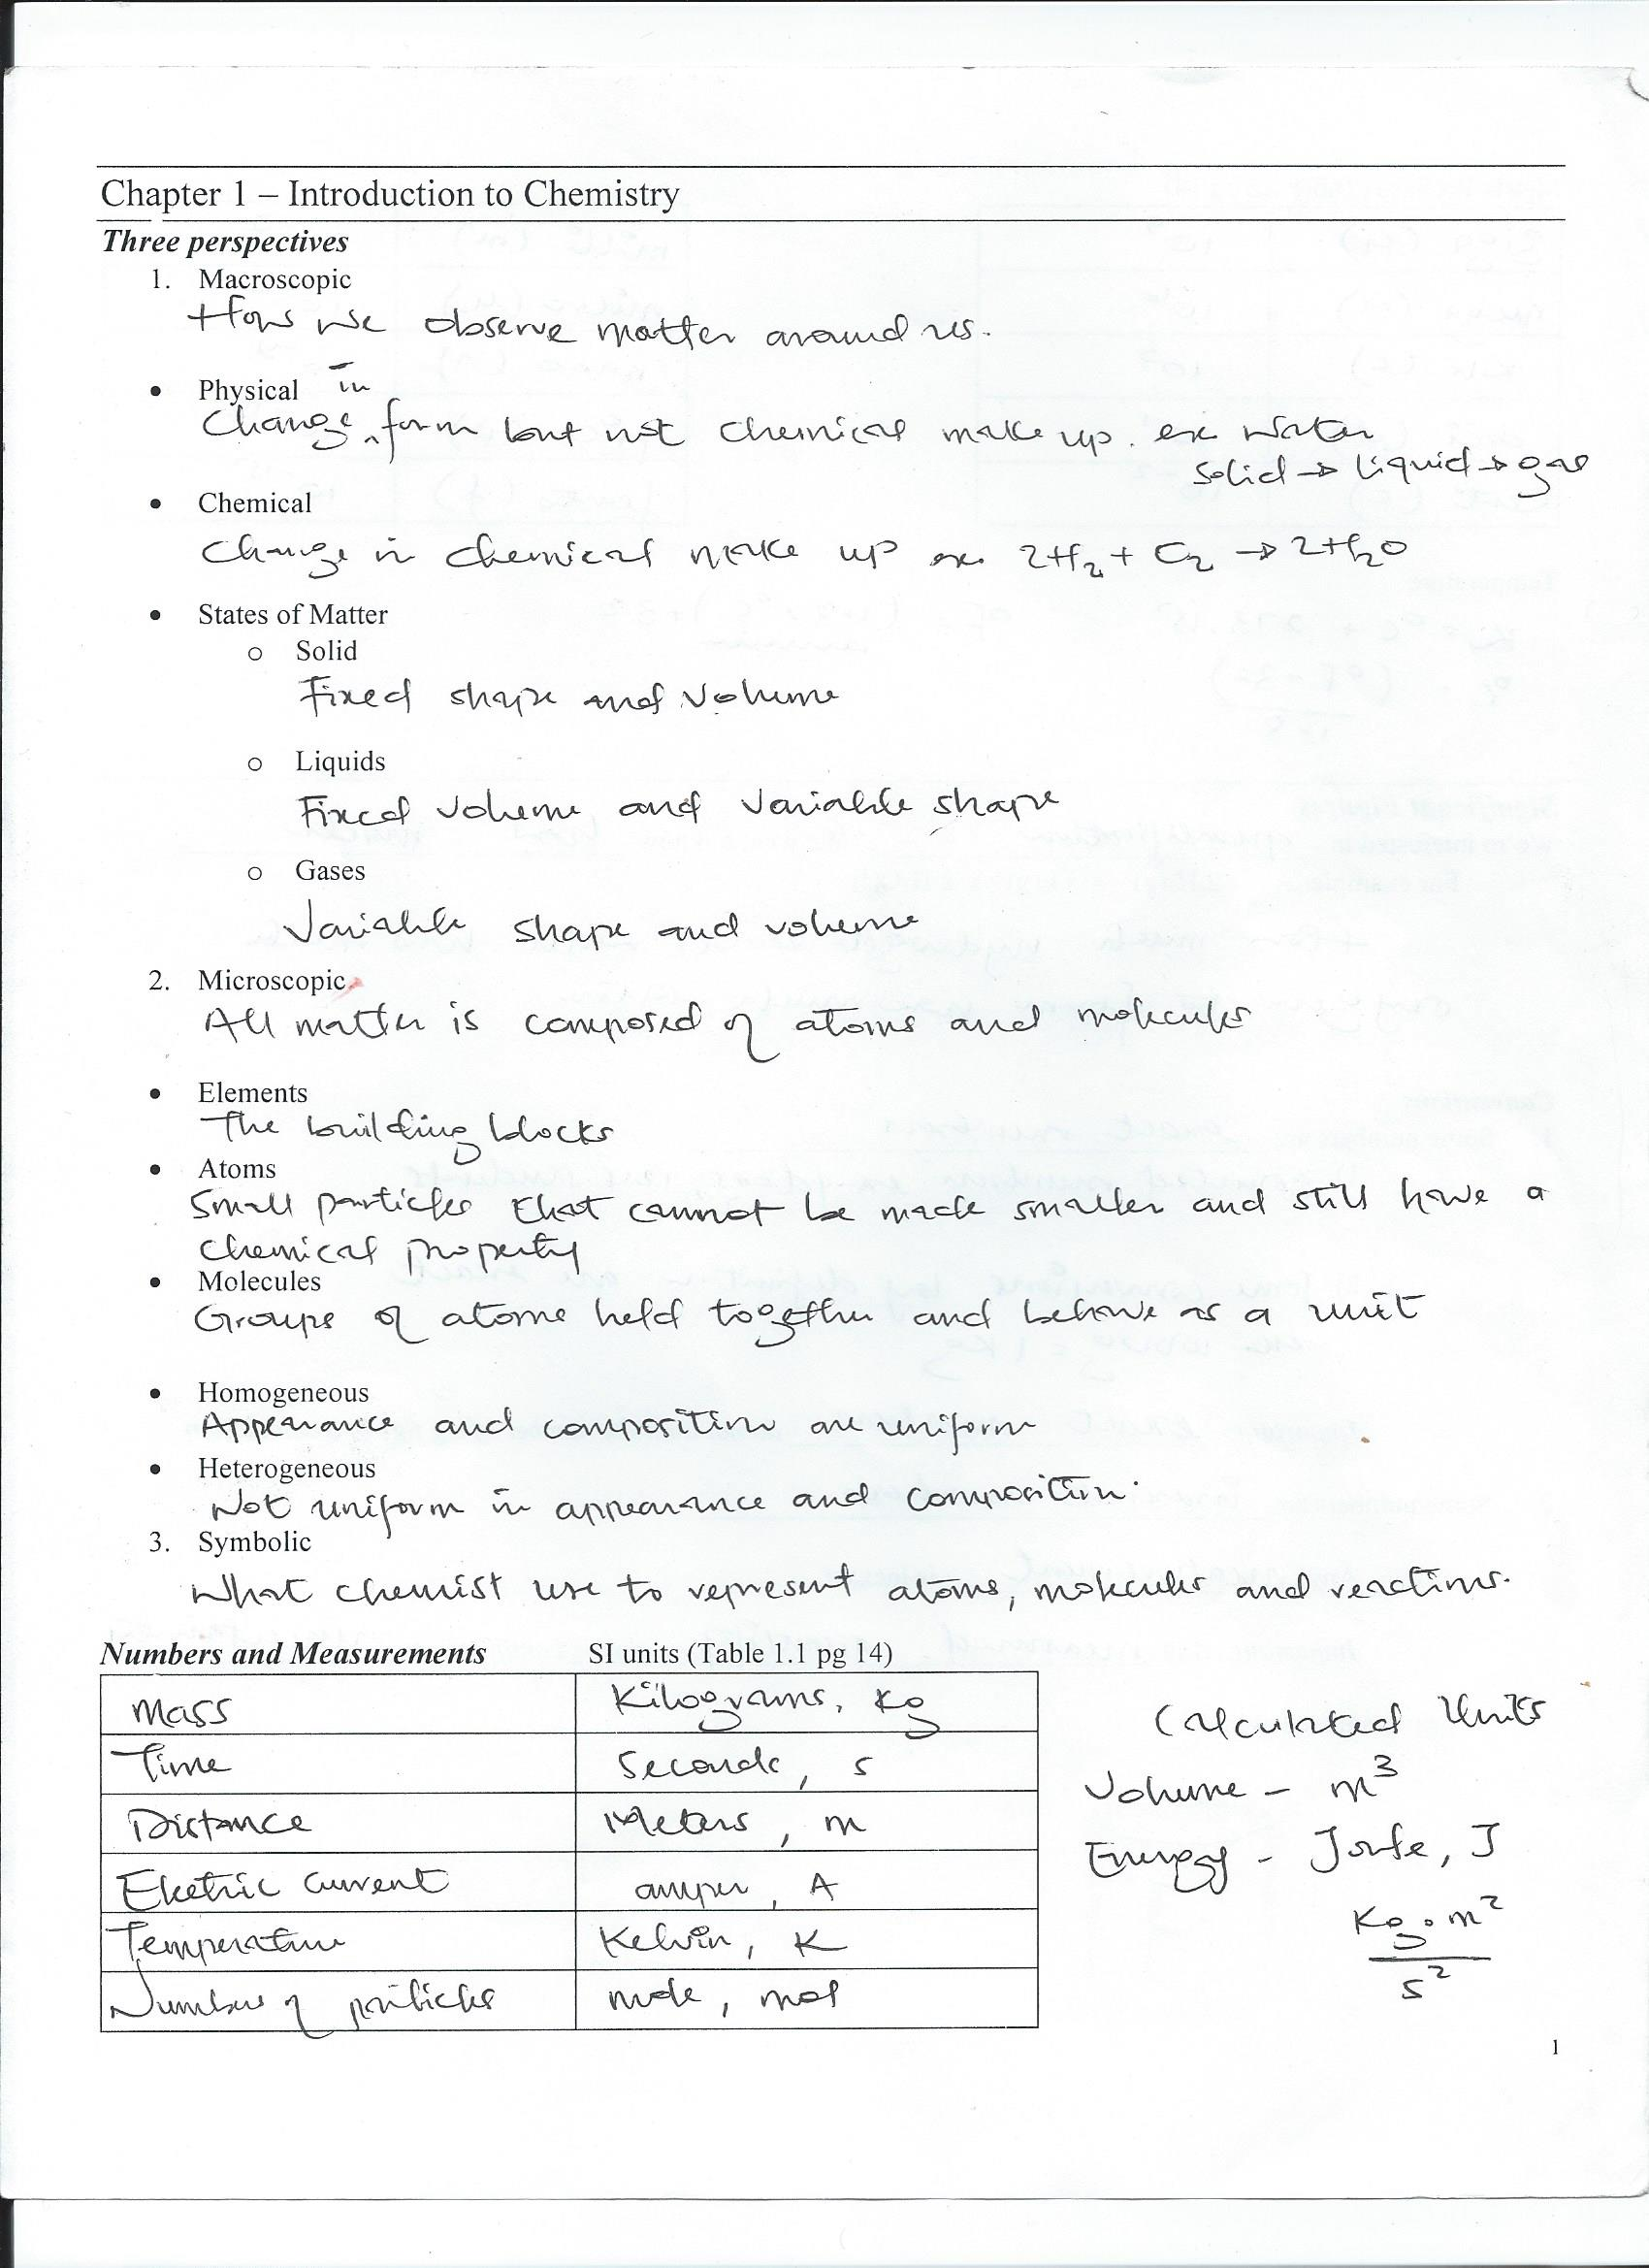 Chapter 1 – Introduction to Chemistry
Three perspectives
1. Macroscopic
How we observe matter around us.
• Physical
Change in form but not chemical make up. ex water
solid → liquid → gas
• Chemical
Change in chemical make up ex. 2H₂ + C₂ → 2H₂O
• States of Matter
o Solid
Fixed shape and volume
o Liquids
Fixed volume and variable shape
o Gases
Variable shape and volume
2. Microscopic
All matter is composed of atoms and molecules
• Elements
The building blocks
• Atoms
Small particles that cannot be made smaller and still have a
chemical property
• Molecules
Groups of atoms held together and behave as a unit
• Homogeneous
Appearance and composition are uniform
• Heterogeneous
Not uniform in appearance and composition.
3. Symbolic
What chemist use to represent atoms, molecules and reactions.
Numbers and Measurements SI units (Table 1.1 pg 14)
Mass Kilograms, Kg
Time Seconds, s
Distance Meters, m
Electric current amper, A
Temperature Kelvin, K
Number of particles mole, mol
Calculated Units
Volume – m³
Energy – Joule, J
Kg · m²
s²
1